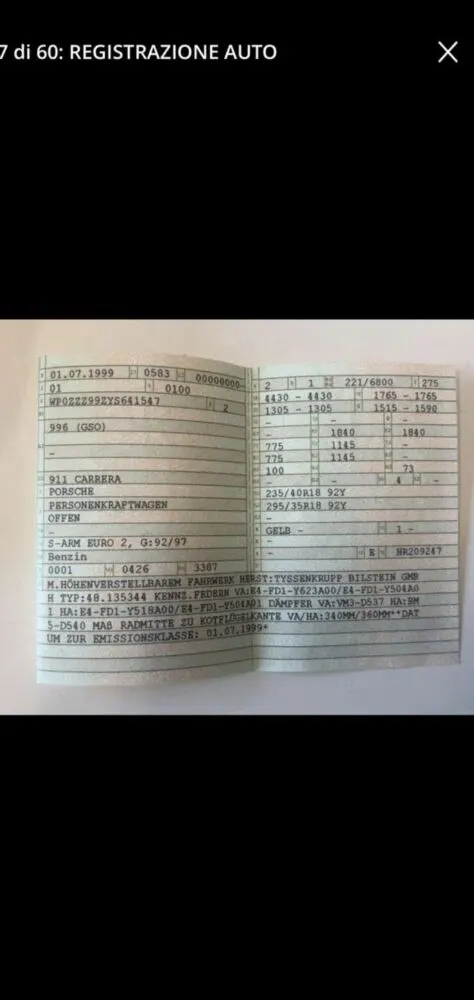 7 di 60: REGISTRAZIONE AUTO
01.07.1999 0583 00000000
01 0100
WP0ZZZ99ZYS641547 2
-
996 (GSO)
-
911 CARRERA
PORSCHE
PERSONENKRAFTWAGEN
OFFEN
-
S-ARM EURO 2, G:92/97
Benzin
0001 0426 3307
2 1 221/6800 275
4430 - 4430 1765 - 1765
1305 - 1305 1515 - 1590
- - -
- 1840 1840
775 1145 -
775 1145 -
100 73
- - 4 -
235/40R18 92Y
295/35R18 92Y
-
GELB - 1 -
-
- E HR209247
M.HÖHENVERSTELLBAREM FAHRWERK HERST:TYSSENKRUPP BILSTEIN GMB
H TYP:48.135344 KENNZ.FEDERN VA:E4-FD1-Y623A00/E4-FD1-Y504A0
1 HA:E4-FD1-Y518A00/E4-FD1-Y504A01 DÄMPFER VA:VM3-D537 HA:BM
5-D540 MAß RADMITTE ZU KOTFLÜGELKANTE VA/HA:340MM/360MM**DAT
UM ZUR EMISSIONSKLASSE: 01.07.1999*